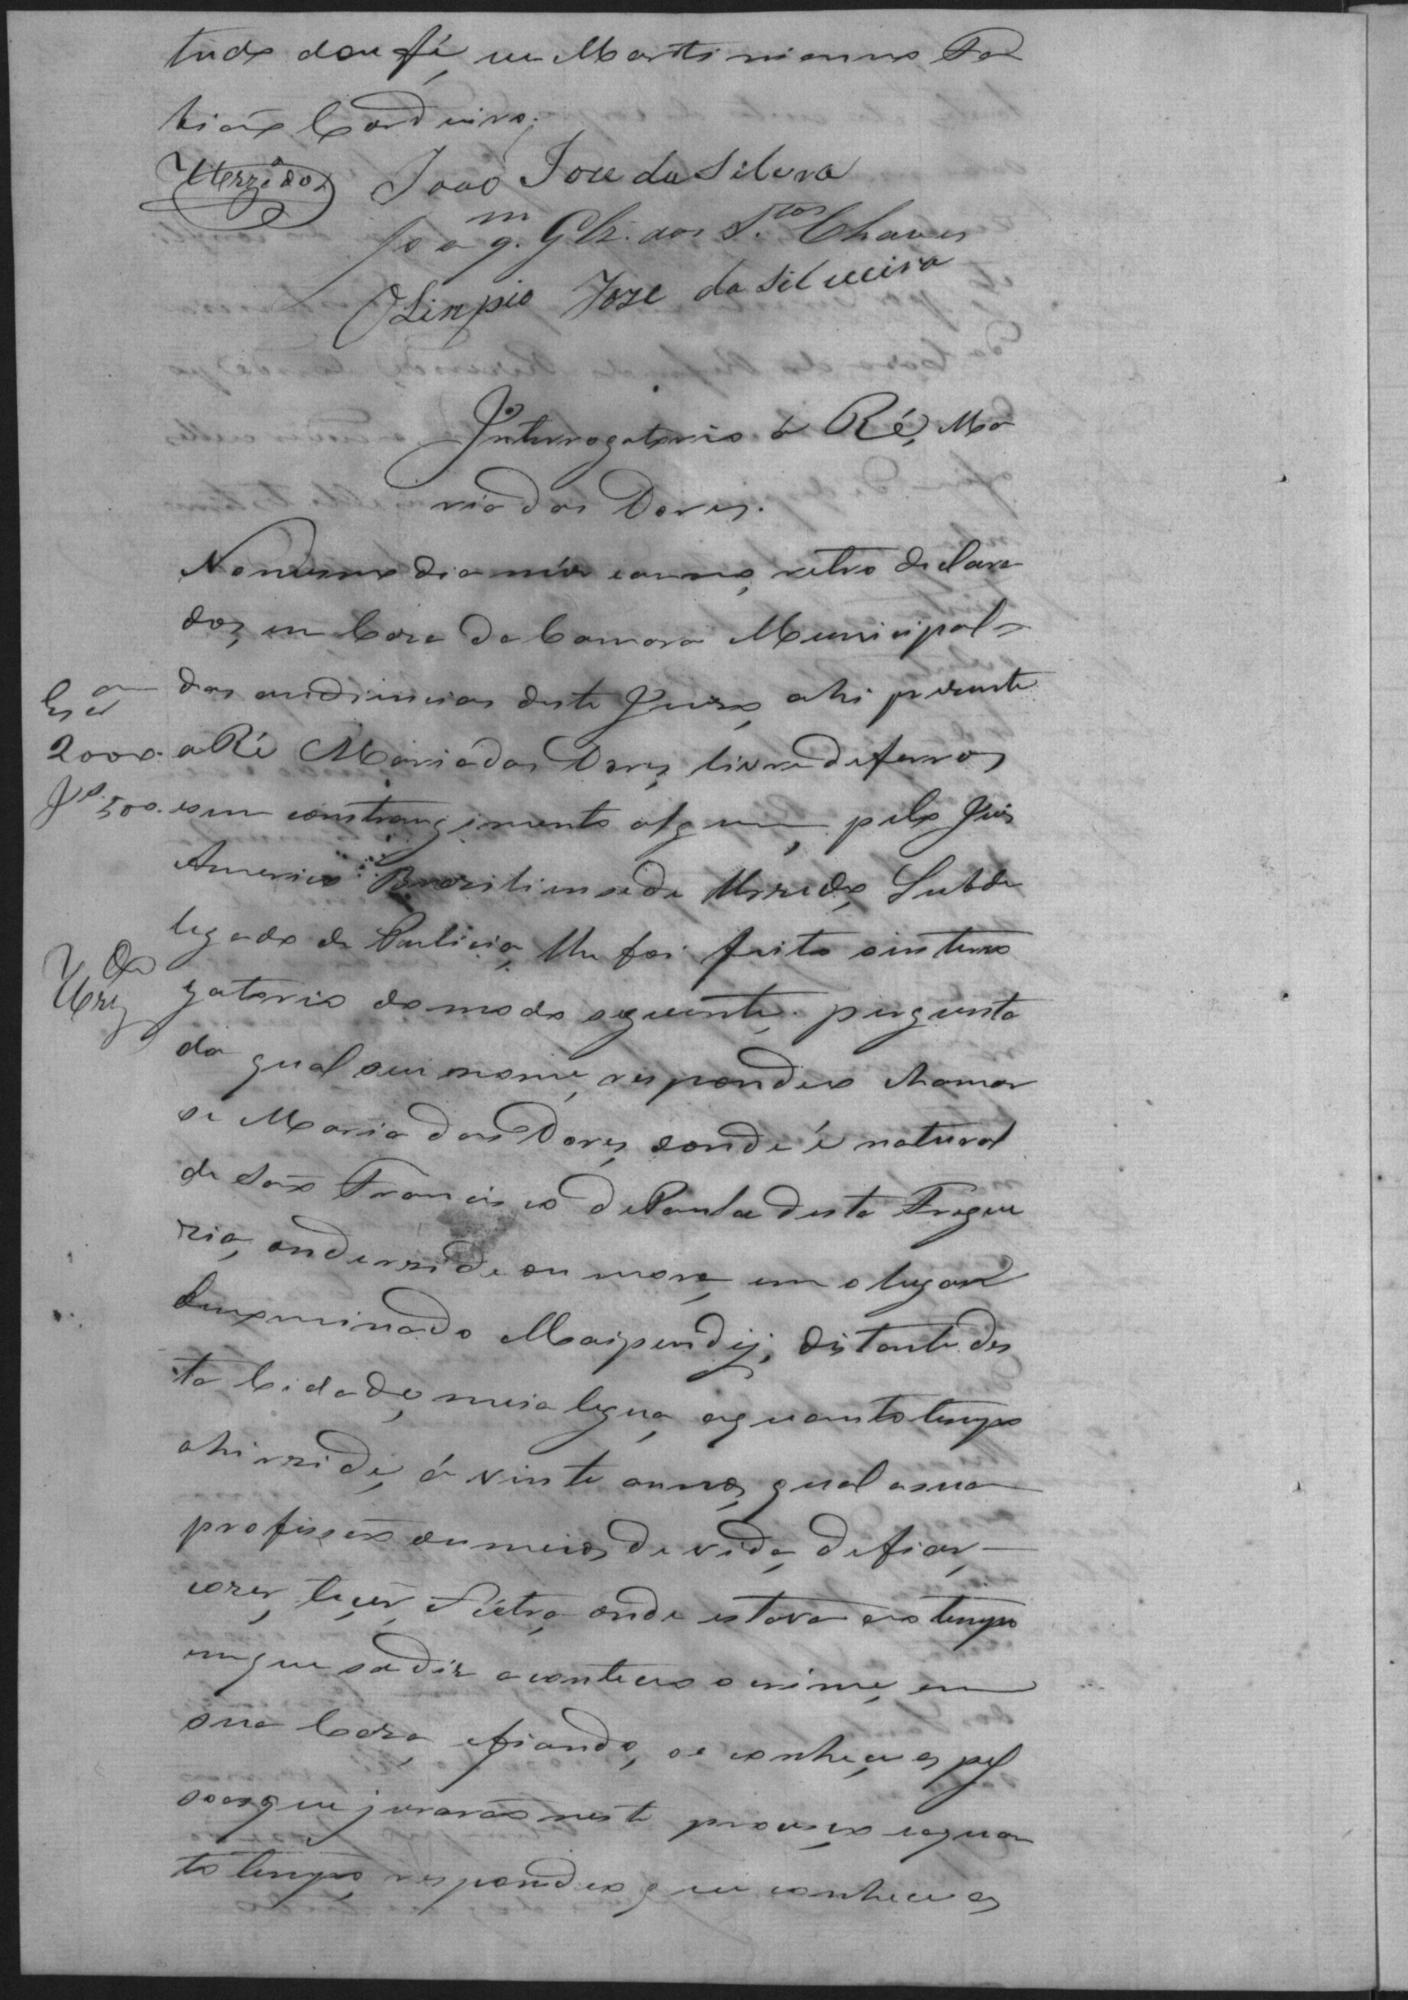 tudo dou fé, eu Martinianno Fa
bião Cordeiro,
Urzedo
João Jose da Silvra
Joaqm. Glz. dos Stos Chaves
Olimpio Joze da Silveeira
Interrogatorio á Ré, Ma
ria das Dores.
No mesmo dia mês e anno, retro declara
dos, em Casa da Camara Municipal e
das audiencias deste Juizo, ahi presente
a Ré Maria das Dores, livre de ferros
e sem constrangimento algum, pelo Juis
Americo Braziliense de Urzedo, Subde
legado de Pulicia, lhe foi feito o interro
gatorio do modo seguinte, pergunta
da qual seu nome, respondeo chamar
se Maria das Dores, donde é natural
de São Francisco de Paula desta Fregue
zia, onde rezide ou mora, em o lugar
denominado, distante des
ta Cidade, meia legua, a quanto tempo
ahi rezide, á vinte annos, qual a sua
profissão ou meios de vida, de fiar,
cozer, teçer, onde estava ao tempo
em que se diz aconteceo o crime, em
sua Caza, e fiando, se conheçe as pes
soas que jurarão neste proceço e a quan
to tempo, respondeo, que conhece as
Escam
2000
Jo. 500
Urz